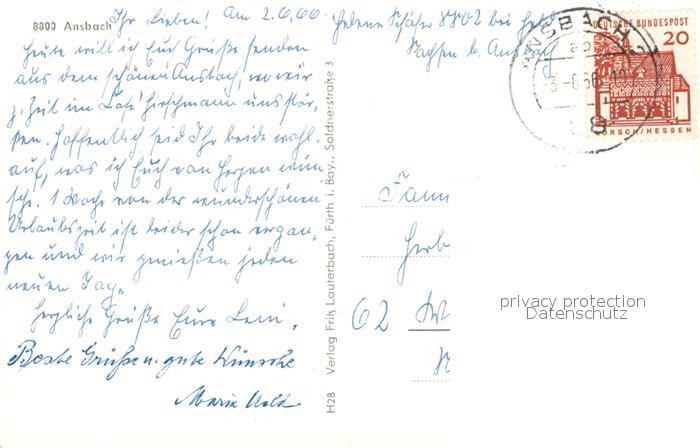 8800 Ansbach
Ihr Lieben! Am 2.6.66
Heute will ich Euch Grüße senden
aus dem schönen Ansbach, wo wir
z. Zeit im Café Hirschmann uns stär-
ken. Hoffentlich seid Ihr beide wohl-
auf, was ich Euch von Herzen wün-
sche. 1 Woche von der wunderschönen
Urlaubszeit ist leider schon vergan-
gen und wir genießen jeden
neuen Tag.
Herzliche Grüße Eure Leni.
Beste Grüße u. gute Wünsche
Maria
Helene Schäfer 8802 bei
Sachsen b. Ansbach
H28 Verlag Fritz Lauterbach, Fürth i. Bay., Soldnerstraße 3
ANSBACH
DEUTSCHE BUNDESPOST
20
LORSCH/HESSEN
Fam
Herb
62
privacy protection
Datenschutz